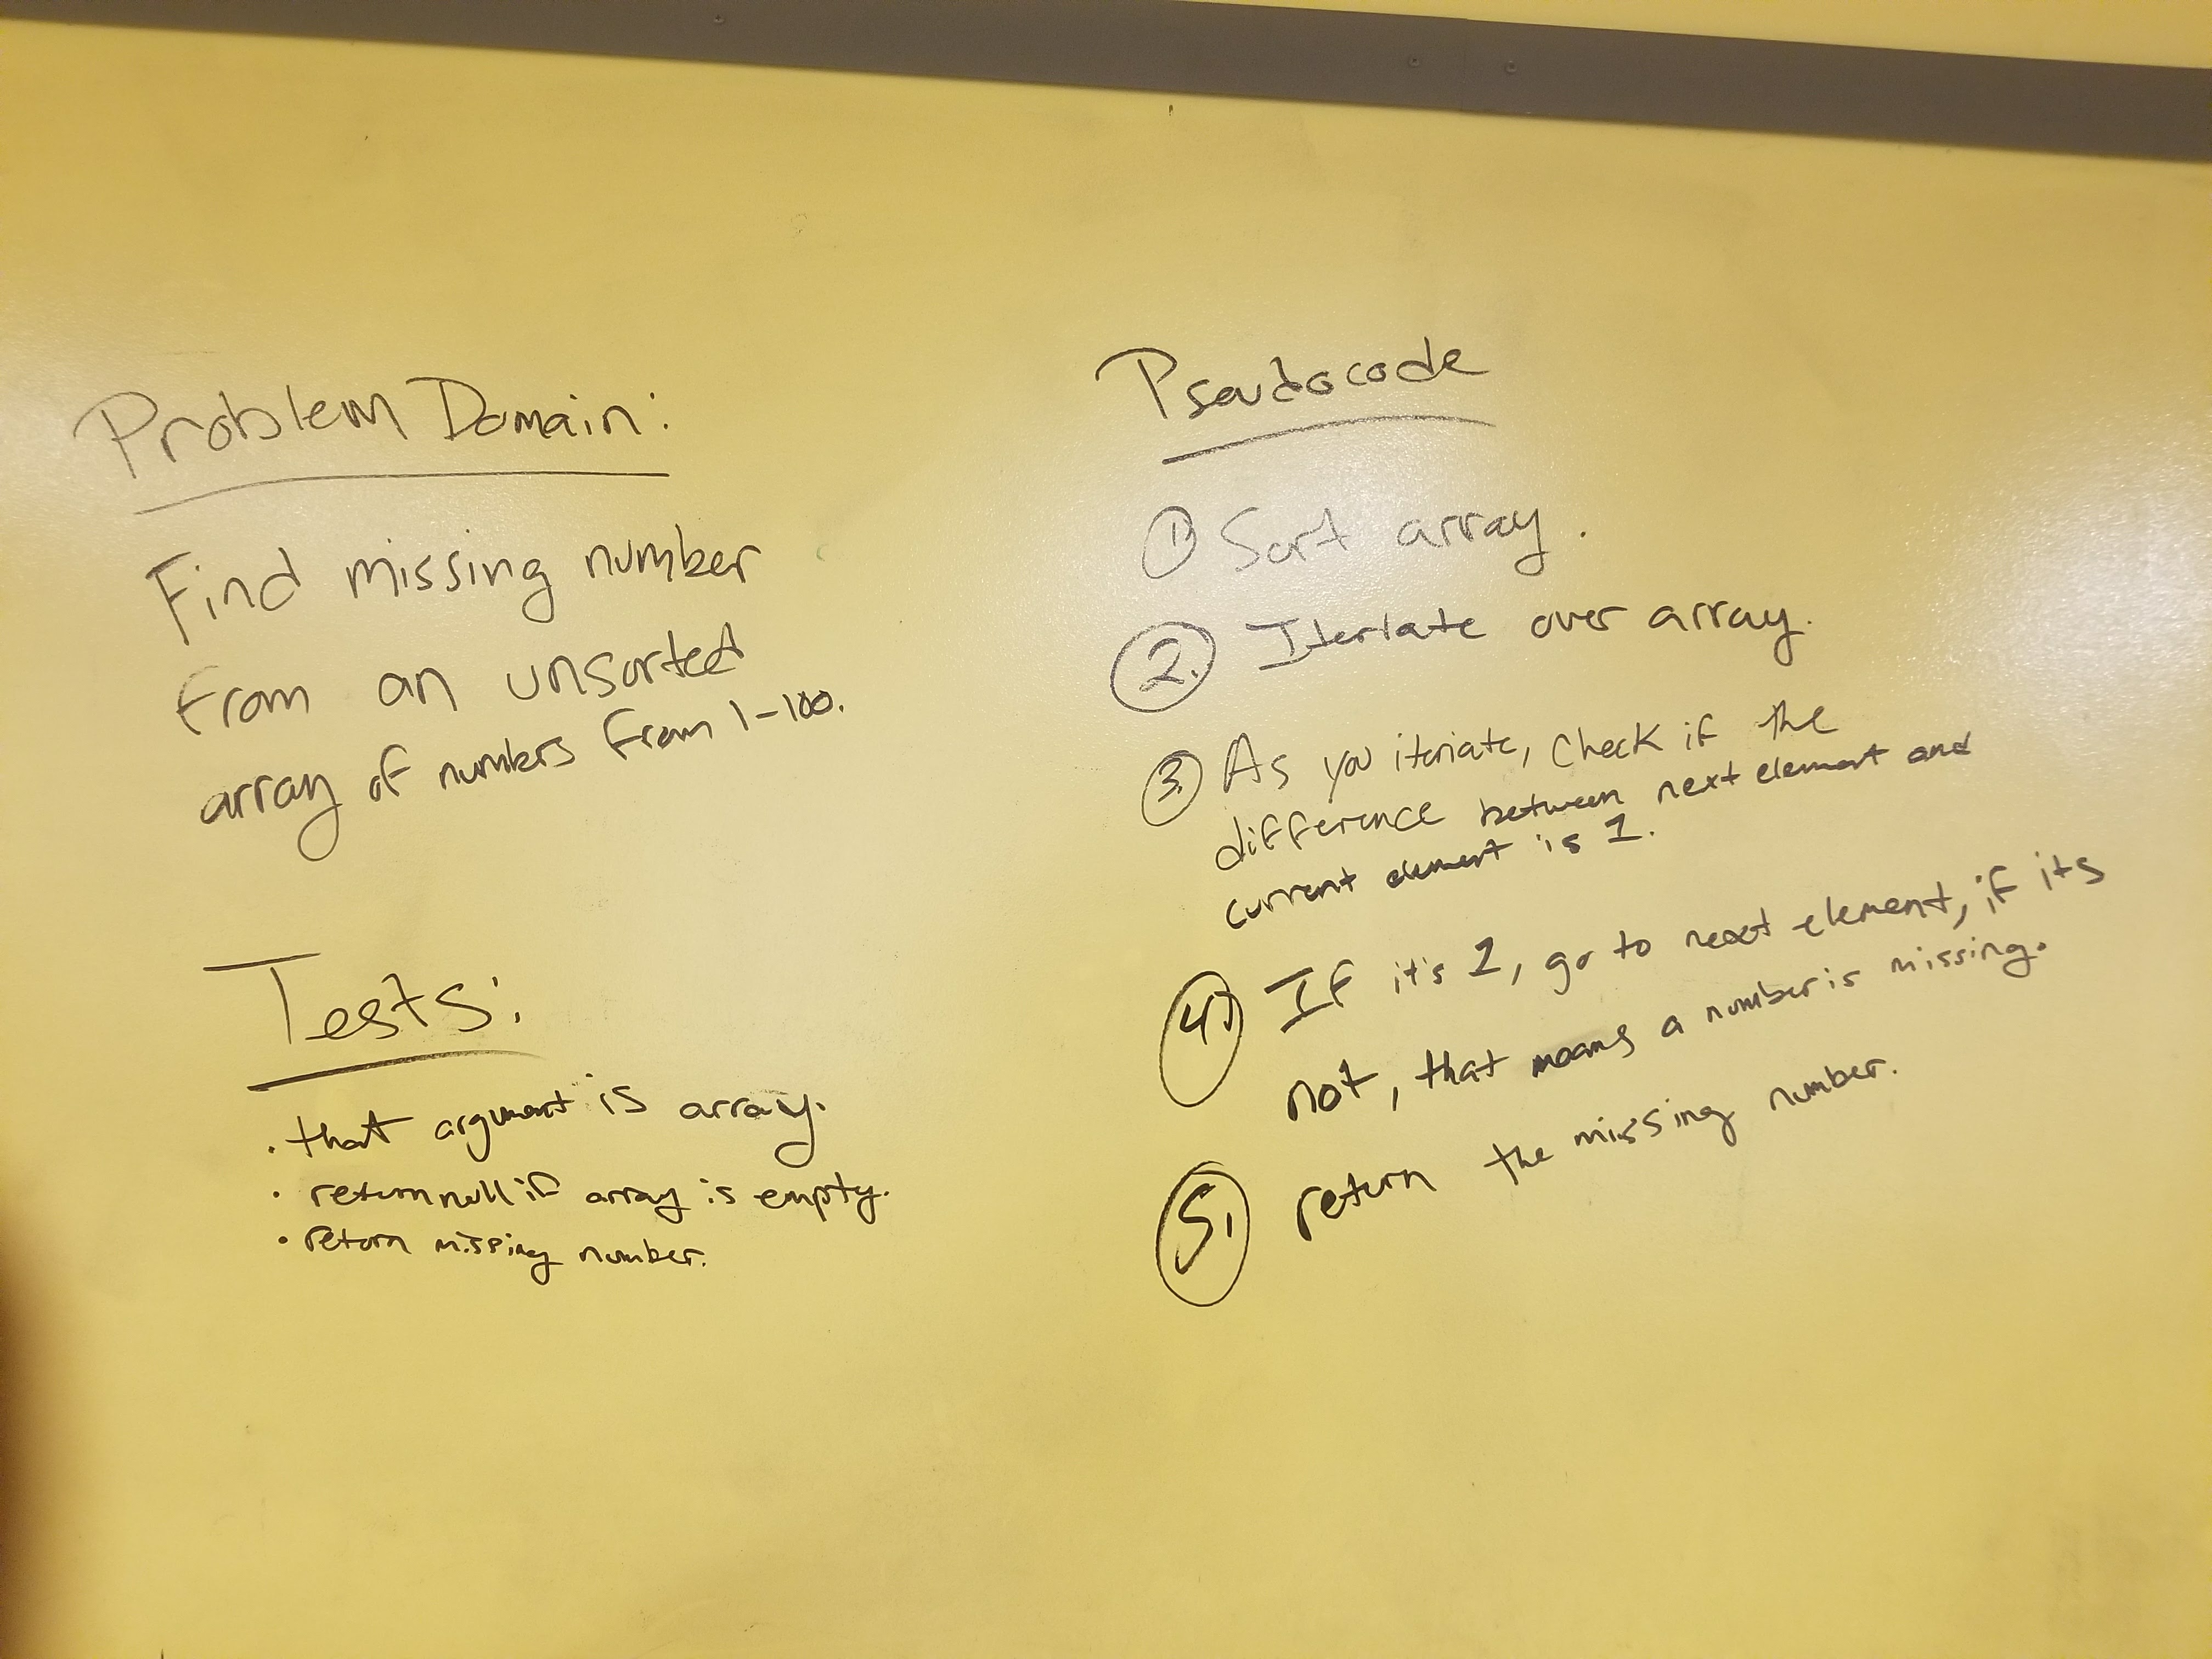 Problem Domain:
Find missing number
from an unsorted
array of numbers from 1-100.
Tests:
• that argument is array.
• return null if array is empty.
• return missing number.
Pseudocode
1) Sort array.
2. Iteriate over array.
3. As you iteriate, check if the
difference between next element and
current element is 1.
4.) If it's 1, go to next element, if its
not, that means a number is missing.
5. return the missing number.